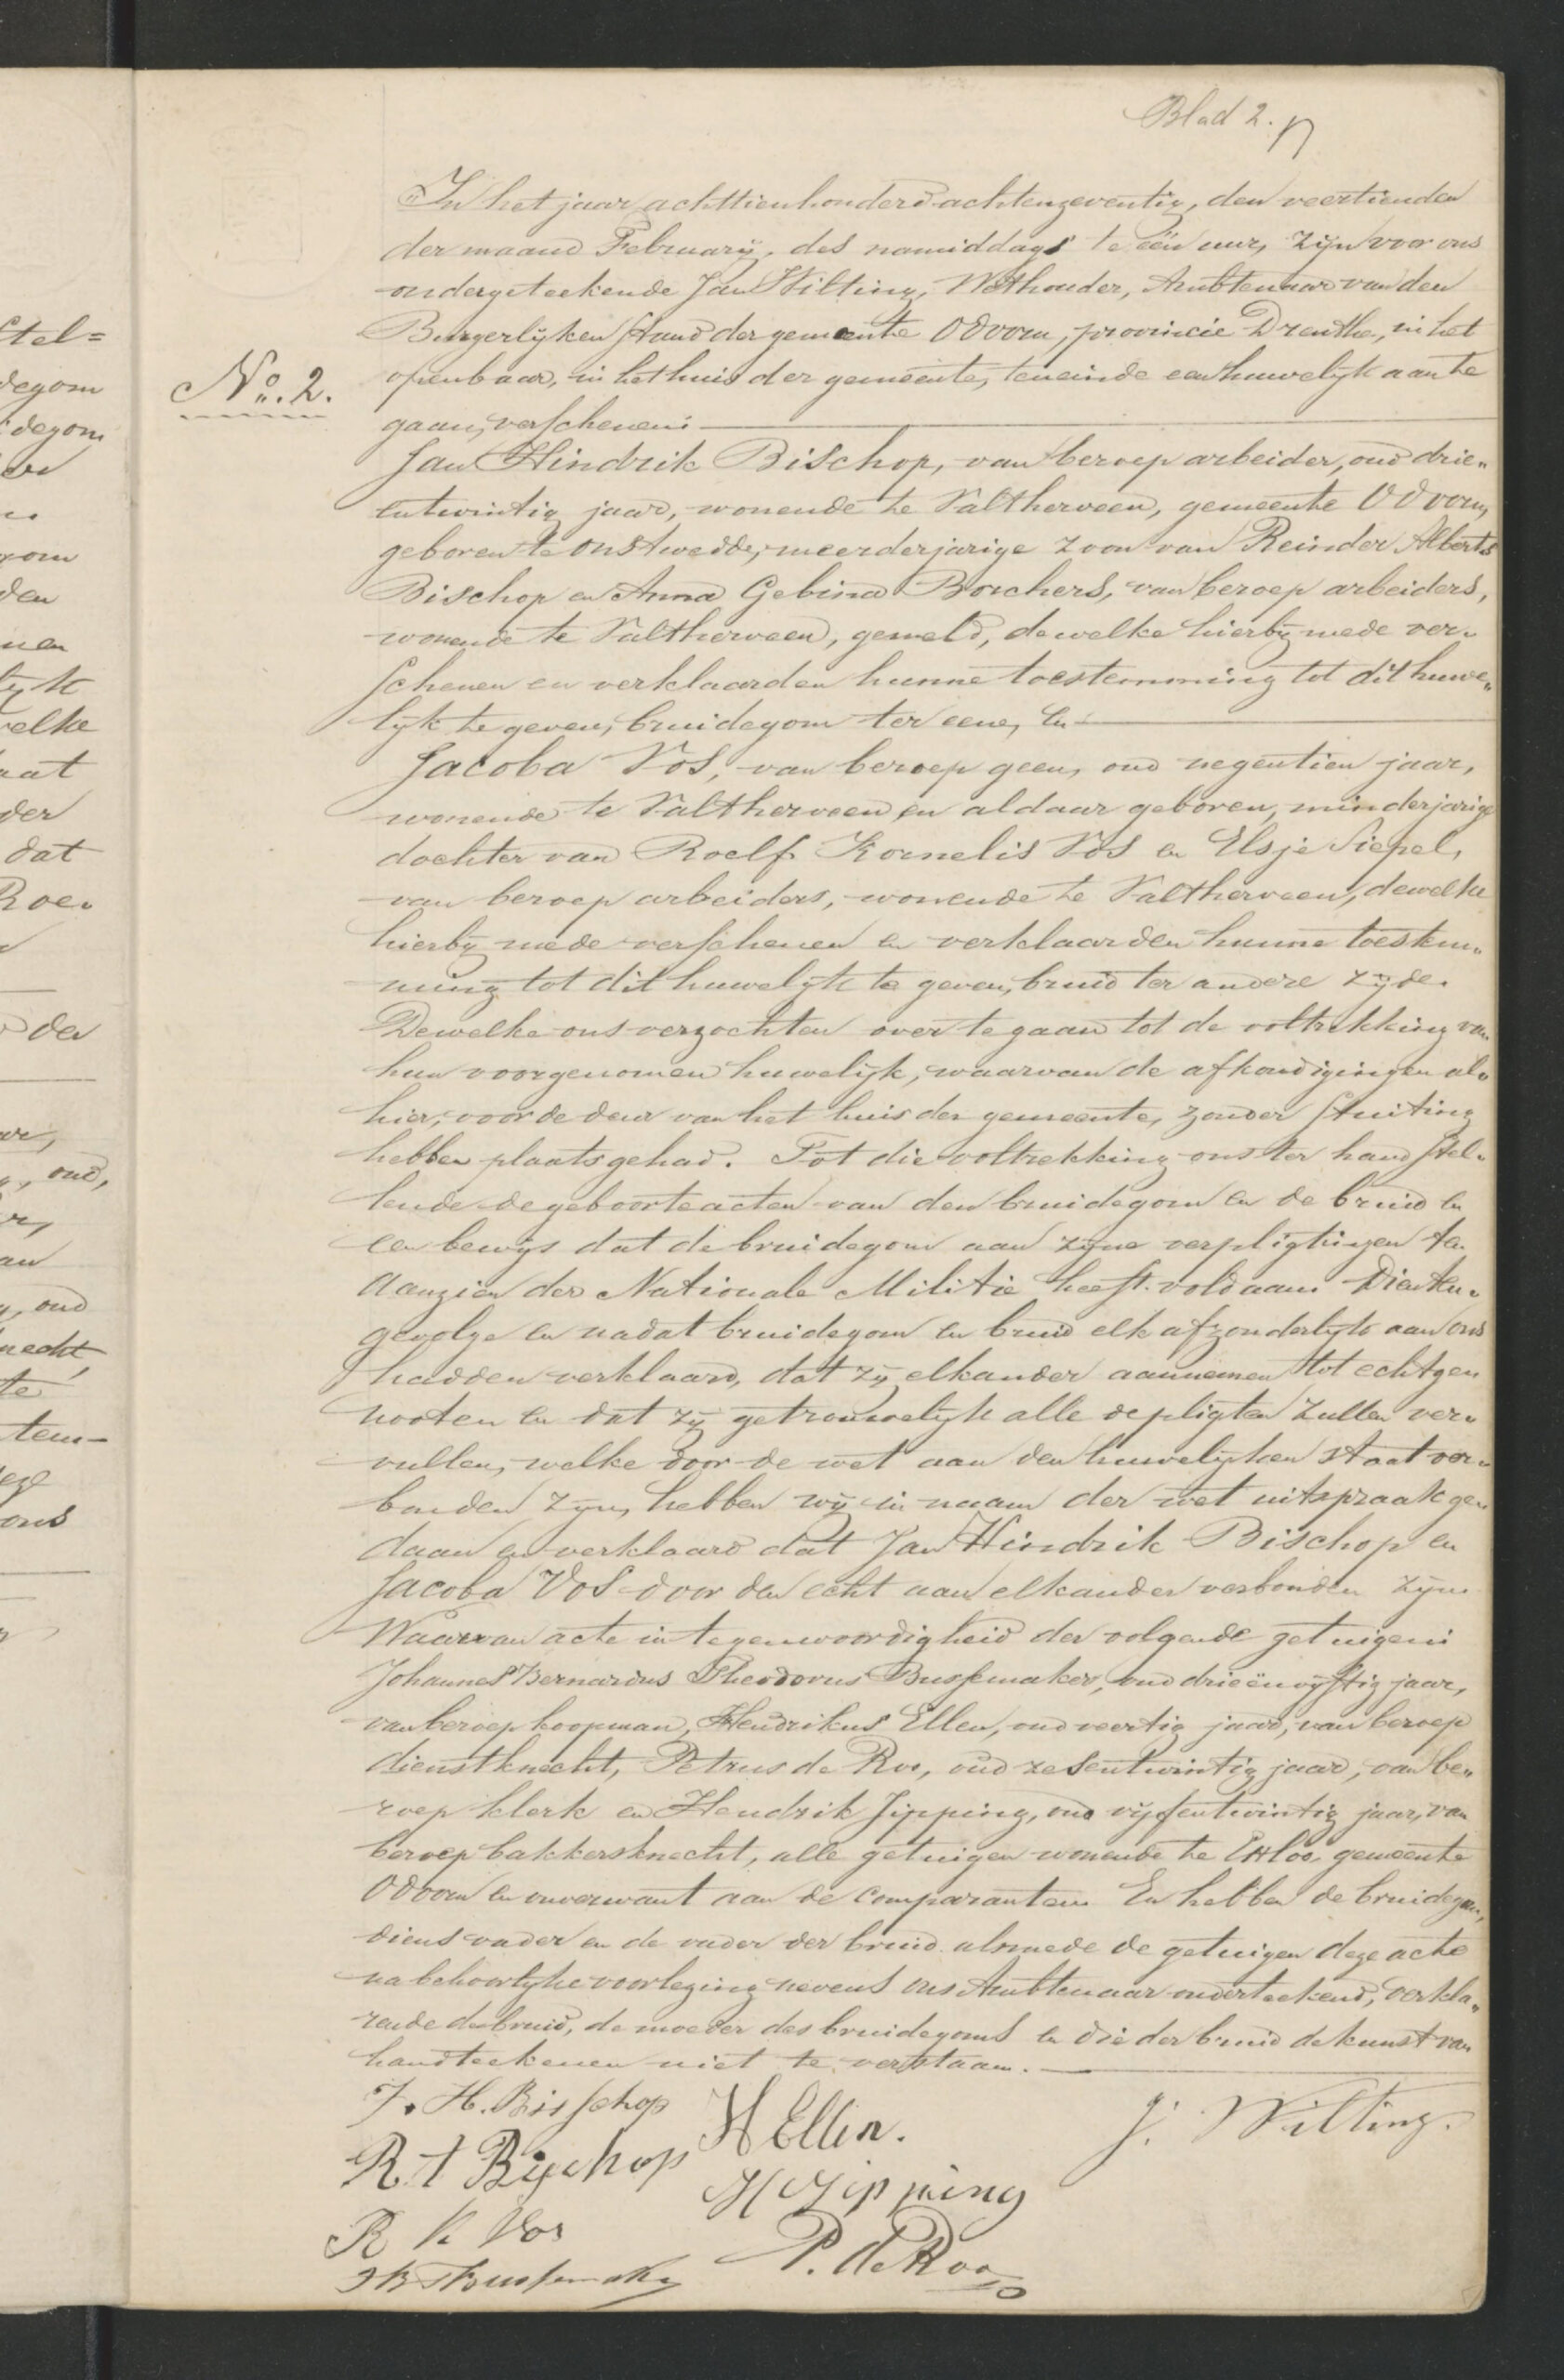 Blad 2.
In het jaar achttienhonderd achtenzeventig, den veertienden
der maand Februarij, des namiddags te één uur, zijn voor ons
ondergeteekende Jan Wilting, Wethouder, Ambtenaar van den
Burgerlijken Stand der gemeente Odoorn, provincie Drenthe, in het
No. 2.
openbaar, in het huis der gemeente, teneinde een huwelijk aan te
gaan, verschenen:
Jan Hindrik Bischop, van beroep arbeider, oud drie„
entwintig jaar, wonende te Valtherveen, gemeente Odoorn,
geboren te Onstwedde, meerderjarige zoon van Reinder Alberts
Bischop en Anna Gebina Borchers, van beroep arbeiders,
wonende te Valtherveen, gemeld, dewelke hierbij mede ver„
schenen en verklaarden hunne toestemming tot dit huwe„
lijk te geven, bruidegom ter eene, en
Jacoba Vos, van beroep geen, oud negentien jaar,
wonende te Valtherveen en aldaar geboren, minderjarige
dochter van Roelf Kornelis Vos en Elsje Siepel,
van beroep arbeiders, wonende te Valtherveen, dewelke
hierbij mede verschenen en verklaarden hunne toestem„
ming tot dit huwelijk te geven, bruid ter andere zijde.
Dewelke ons verzochten over te gaan tot de voltrekking van
hun voorgenomen huwelijk, waarvan de afkondigingen al„
hier, voor de deur van het huis der gemeente, zonder stuiting
hebben plaats gehad. Tot die voltrekking ons ter hand stel„
lende de geboorteacten van den bruidegom en de bruid en
een bewijs dat de bruidegom aan zijne verpligtingen ten
aanzien der Nationale Militie heeft voldaan. Dienten„
gevolge en nadat bruidegom en bruid elk afzonderlijk aan ons
hadden verklaard, dat zij elkander aannemen tot echtgen
nooten en dat zij getrouwelijk alle de pligten zullen ver„
vullen, welke door de wet aan den huwelijken staat ver„
bonden zijn, hebben wij in naam der wet uitspraak ge„
daan en verklaard dat Jan Hindrik Bischop en
Jacoba Vos door den echt aan elkander verbonden zijn.
Waarvan acte in tegenwoordigheid der volgende getuigen:
Johannes Bernardus Theodorus Bussemaker, oud drieënvijftig jaar,
van beroep koopman, Hendrikus Ellen, oud veertig jaar, van beroep
dienstknecht, Petrus de Roo, oud zesentwintig jaar, van be„
roep klerk en Hendrik Jipping, oud vijfentwintig jaar, van
beroep bakkersknecht, alle getuigen wonende te Exloo, gemeente
Odoorn en onverwant aan de comparanten. En hebben de bruidegom,
diens vader en de vader der bruid alsmede de getuigen deze acte
na behoorlijke voorlezing nevens ons Ambtenaar onderteekend, verkla„
rende de bruid, de moeder des bruidegoms en die der bruid de kunst van
handteekenen niet te verstaan.
J. H. Bisschop
H Ellen.
J. Wilting.
R. A Bischop
H Jipping
R K Vos
P. de Roo
JBTBussemaker